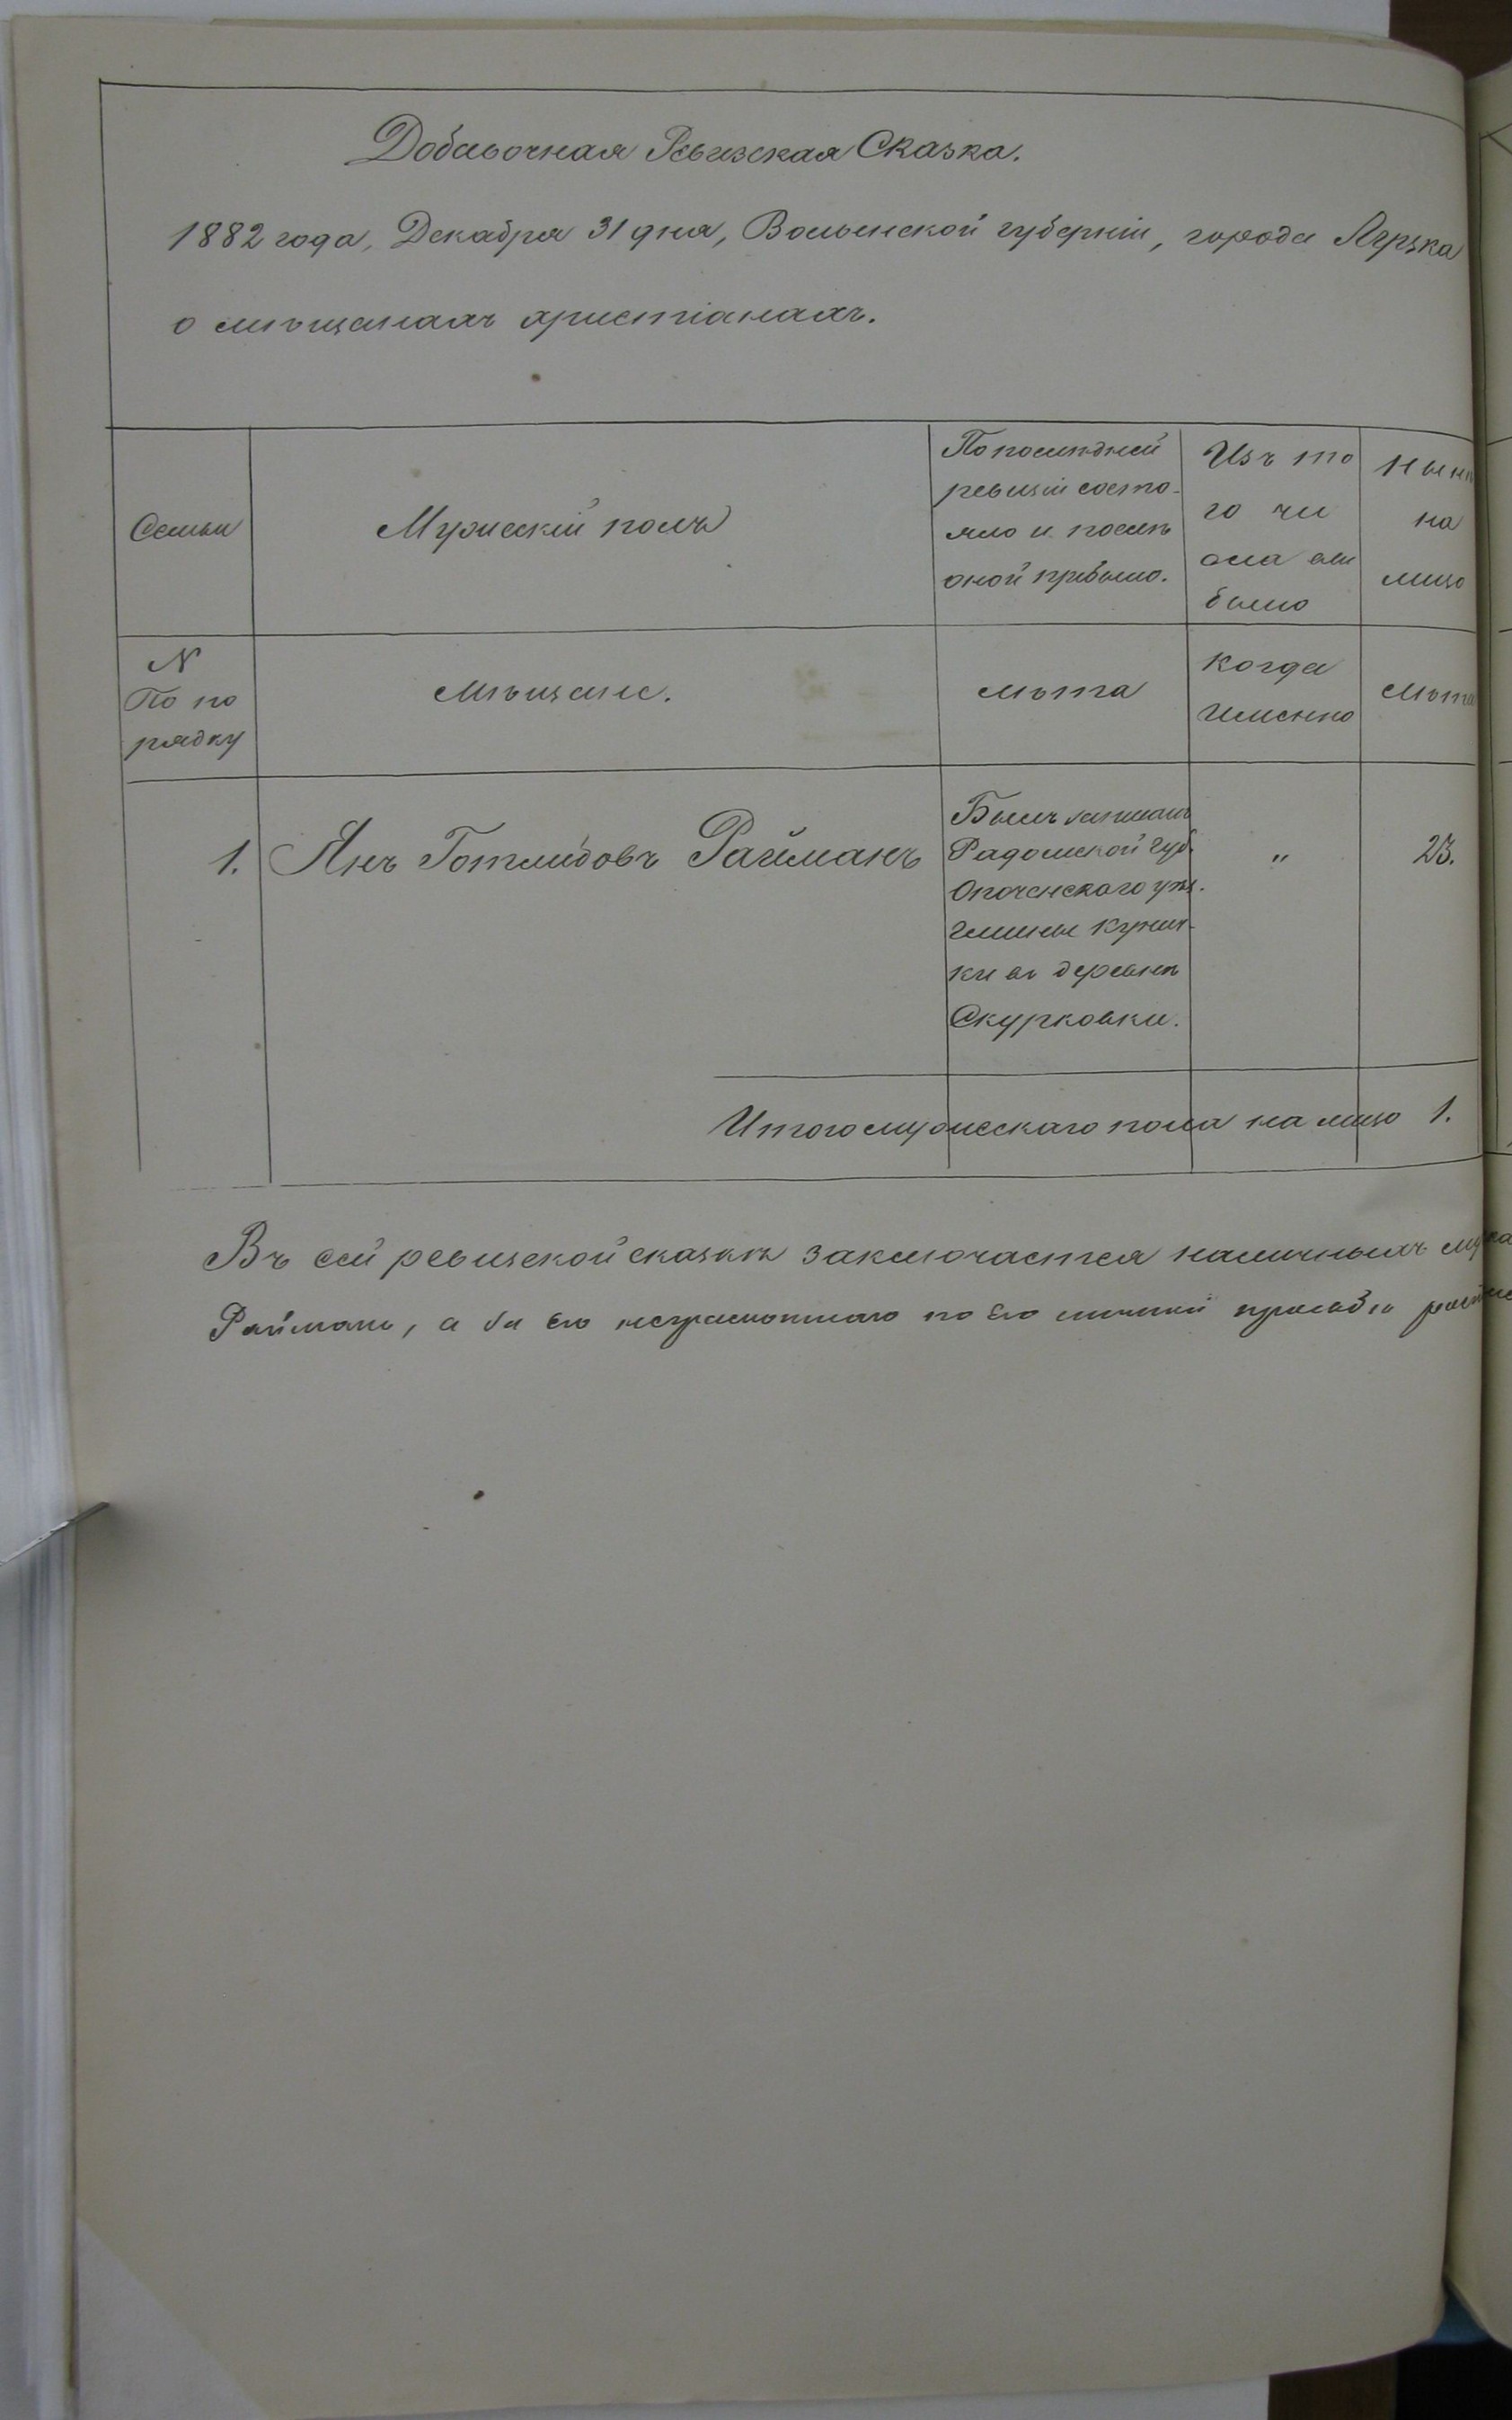 Добавочная Ревизская Сказка.
1882 года, Декабря 31 дня, Волынской губерніи, города Луцка
о мѣщанахъ христіанахъ.
Семьи
Мужескій полъ
По послѣдней
ревизіи состо-
яло и послѣ
оной прибыло.
Изъ то
го чи
сла вы
было
Нынѣ
на
лицо
N
По по
рядку
Мѣщане.
Лѣта
Когда
Именно
Лѣта
1.
Янъ Готлибовъ Райманъ
Былъ записанъ
Радомской Губ.
Опоченского уѣз.
Гмины
ки въ деревнѣ
Скурковки.
"
23.
Итого мужескаго пола на лицо 1.
Въ сей ревизской сказкѣ заключается наличныхъ
Райманъ, а за его неграмотнаго по его личной просьбѣ